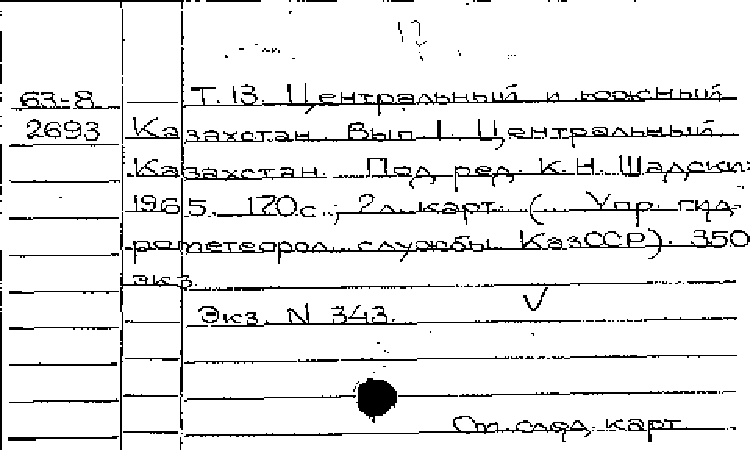 17
63-8 Т. 13. Центральный и южный
2693 Казахстан. Вып. 1. Центральный
Казахстан. Под ред. К.Н. Шадски
1965. 120с.; 2л. карт. (... Упр. гид-
рометеорол. службы КазССР). 350
экз.
Экз. N 343. V
См. след. карт